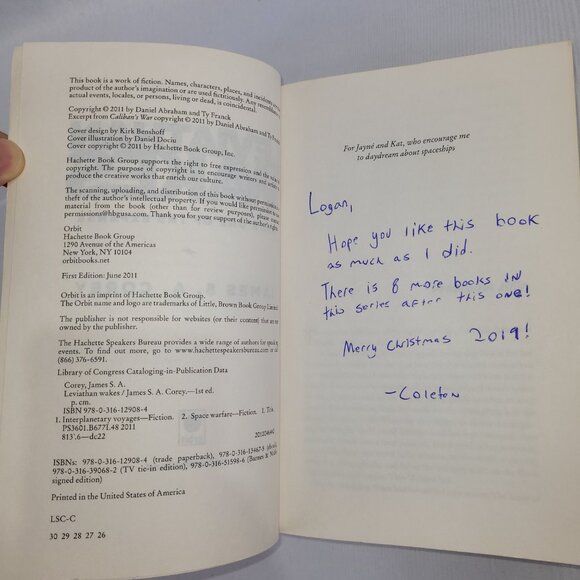 This book is a work of fiction. Names, characters, places, and incidents
product of the author's imagination or are used fictitiously. Any
actual events, locales, or persons, living or dead, is coincidental.
Copyright © 2011 by Daniel Abraham and Ty Franck
Excerpt from Caliban's War copyright © 2011 by Daniel Abraham and Ty
Cover design by Kirk Benshoff
Cover illustration by Daniel Dociu
Cover copyright © 2011 by Hachette Book Group, Inc.
Hachette Book Group supports the right to free expression and the
copyright. The purpose of copyright is to encourage writers and
produce the creative works that enrich our culture.
The scanning, uploading, and distribution of this book without permission
theft of the author's intellectual property. If you would like permission
material from the book (other than for review purposes), please
permissions@hbgusa.com. Thank you for your support of the author's
Orbit
Hachette Book Group
1290 Avenue of the Americas
New York, NY 10104
orbitbooks.net
First Edition: June 2011
Orbit is an imprint of Hachette Book Group.
The Orbit name and logo are trademarks of Little, Brown Book Group
The publisher is not responsible for websites (or their content) that are
owned by the publisher.
The Hachette Speakers Bureau provides a wide range of authors for
events. To find out more, go to www.hachettespeakersbureau.com
(866) 376-6591.
Library of Congress Cataloging-in-Publication Data
Corey, James S. A.
Leviathan wakes / James S. A. Corey.—1st ed.
p. cm.
ISBN 978-0-316-12908-4
1. Interplanetary voyages—Fiction. 2. Space warfare—Fiction. I. Title.
PS3601.B677L48 2011
813'.6—dc22
ISBNs: 978-0-316-12908-4 (trade paperback),
978-0-316-39068-2 (TV tie-in edition), 978-0-316-51598-6 (Barnes &
signed edition)
Printed in the United States of America
LSC-C
30 29 28 27 26
For Jayné and Kat, who encourage me
to daydream about spaceships
Logan,
Hope you like this book
as much as I did.
There is 8 more books in
this series after this one!
Merry Christmas 2019!
-Coleton